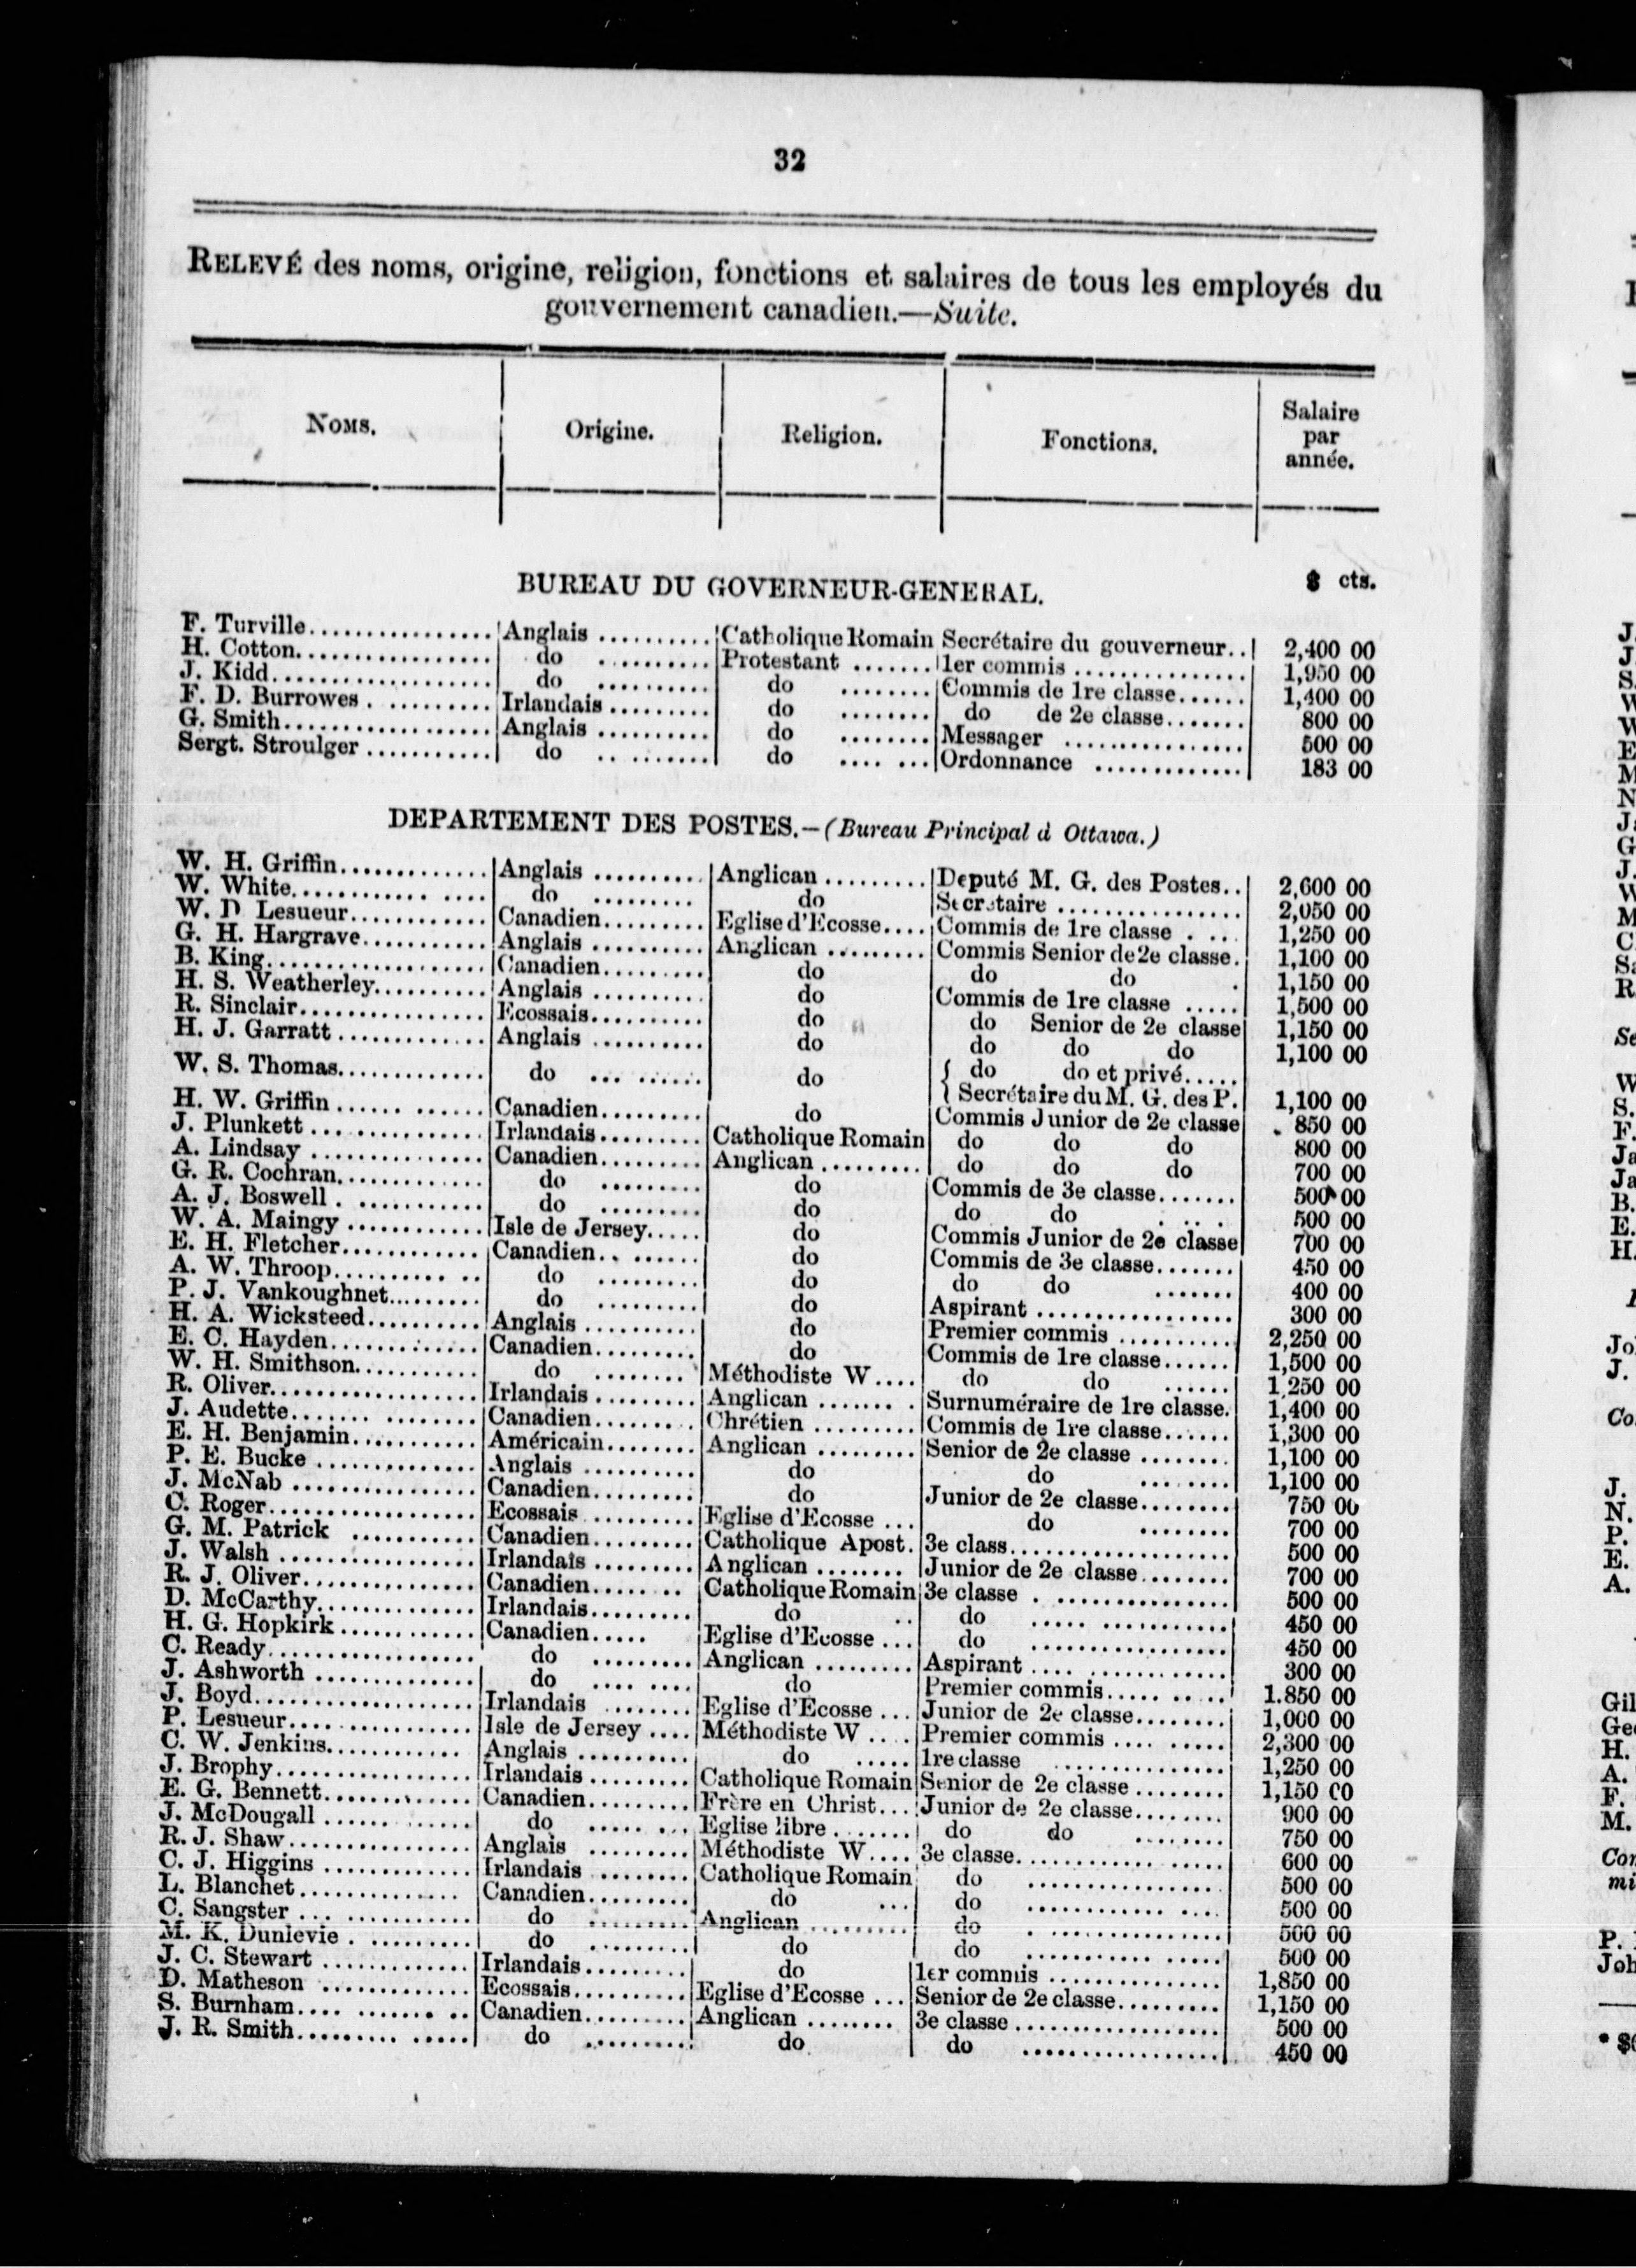 32
RELEVÉ des noms, origine, religion, fonctions et salaires de tous les employés du
gouvernement canadien.—Suite.
NOMS. Origine. Religion. Fonctions. Salaire par année.
BUREAU DU GOVERNEUR-GENERAL. $ cts.
F. Turville................ Anglais .......... Catholique Romain Secrétaire du gouverneur.. 2,400 00
H. Cotton................. do .......... Protestant ....... 1er commis ............... 1,950 00
J. Kidd................... do .......... do ........ Commis de 1re classe...... 1,400 00
F. D. Burrowes . .......... Irlandais ......... do ........ do de 2e classe....... 800 00
G. Smith.................. Anglais .......... do ........ Messager ................ 500 00
Sergt. Stroulger ........... do .. ........ do .... ... Ordonnance ............. 183 00
DEPARTEMENT DES POSTES.—(Bureau Principal à Ottawa.)
W. H. Griffin............. Anglais .......... Anglican ......... Deputé M. G. des Postes.. 2,600 00
W. White............ .... do ......... do Secretaire ................ 2,050 00
W. D Lesueur............ Canadien......... Eglise d'Ecosse.... Commis de 1re classe . ... 1,250 00
G. H. Hargrave........... Anglais .......... Anglican ......... Commis Senior de 2e classe. 1,100 00
B. King................... Canadien......... do do do . 1,150 00
H. S. Weatherley.......... Anglais .......... do Commis de 1re classe ..... 1,500 00
R. Sinclair................ Ecossais.......... do do Senior de 2e classe 1,150 00
H. J. Garratt ............. Anglais .......... do do do do 1,100 00
W. S. Thomas............. do ... ...... do { do do et privé.....
{ Secrétaire du M. G. des P. 1,100 00
H. W. Griffin ...... ....... Canadien......... do Commis Junior de 2e classe . 850 00
J. Plunkett ... ............ Irlandais......... Catholique Romain do do do 800 00
A. Lindsay ............... Canadien......... Anglican ......... do do do 700 00
G. R. Cochran............. do ......... do Commis de 3e classe....... 500 00
A. J. Boswell . ........... do ......... do do do . ... . 500 00
W. A. Maingy ............ Isle de Jersey..... do Commis Junior de 2e classe 700 00
E. H. Fletcher............ Canadien.. ...... do Commis de 3e classe....... 450 00
A. W. Throop.......... .. do ......... do do do ....... 400 00
P. J. Vankoughnet......... do ......... do Aspirant ................. 300 00
H. A. Wicksteed.......... Anglais .......... do Premier commis .......... 2,250 00
E. C. Hayden............. Canadien......... do Commis de 1re classe...... 1,500 00
W. H. Smithson........... do ........ Méthodiste W.... do do ...... 1,250 00
R. Oliver.................. Irlandais ......... Anglican ....... . Surnuméraire de 1re classe. 1,400 00
J. Audette....... ........ Canadien........ . Chrétien ......... Commis de 1re classe...... 1,300 00
E. H. Benjamin........... Américain........ Anglican ......... Senior de 2e classe ........ 1,100 00
P. E. Bucke .............. Anglais .......... do do ........ 1,100 00
J. McNab ................ Canadien......... do Junior de 2e classe........ 750 00
C. Roger.................. Ecossais .......... Eglise d'Ecosse ... do ........ 700 00
G. M. Patrick ........... Canadien......... Catholique Apost. 3e class................... 500 00
J. Walsh ................. Irlandais ......... Anglican ........ Junior de 2e classe........ 700 00
R. J. Oliver............... Canadien....... .. Catholique Romain 3e classe . ............... 500 00
D. McCarthy............. Irlandais......... do .. do ..... ........... 450 00
H. G. Hopkirk ............ Canadien..... Eglise d'Ecosse ... do ................. 450 00
C. Ready.................. do ......... Anglican ......... Aspirant .... ............. 300 00
J. Ashworth .............. do .... .... do Premier commis...... ..... 1.850 00
J. Boyd................... Irlandais ........ Eglise d'Ecosse ... Junior de 2e classe........ 1,000 00
P. Lesueur.... ............ Isle de Jersey .... Méthodiste W .... Premier commis .... ..... 2,300 00
C. W. Jenkins............ Anglais .......... do ..... 1re classe ............... 1,250 00
J. Brophy................. Irlandais ......... Catholique Romain Senior de 2e classe ........ 1,150 00
E. G. Bennett............. Canadien......... Frère en Christ... Junior de 2e classe........ 900 00
J. McDougall ...... ...... do ..... ... Eglise libre ....... do do ........ 750 00
R. J. Shaw................ Anglais ......... Méthodiste W.... 3e classe............. ..... 600 00
C. J. Higgins ............. Irlandais ......... Catholique Romain do ................. 500 00
L. Blanchet............... Canadien......... do ... do ............ .... 500 00
C. Sangster ... ............ do ......... Anglican ......... do . ............... 500 00
M. K. Dunlevie . ......... do ......... do do ........... ..... 500 00
J. C. Stewart ............. Irlandais......... do 1er commis ............... 1,850 00
D. Matheson ............. Ecossais.......... Eglise d'Ecosse ... Senior de 2e classe......... 1,150 00
S. Burnham.... ....... .. Canadien......... Anglican ........ 3e classe .................. 500 00
J. R. Smith.......... ..... do ......... do do ................. 450 00